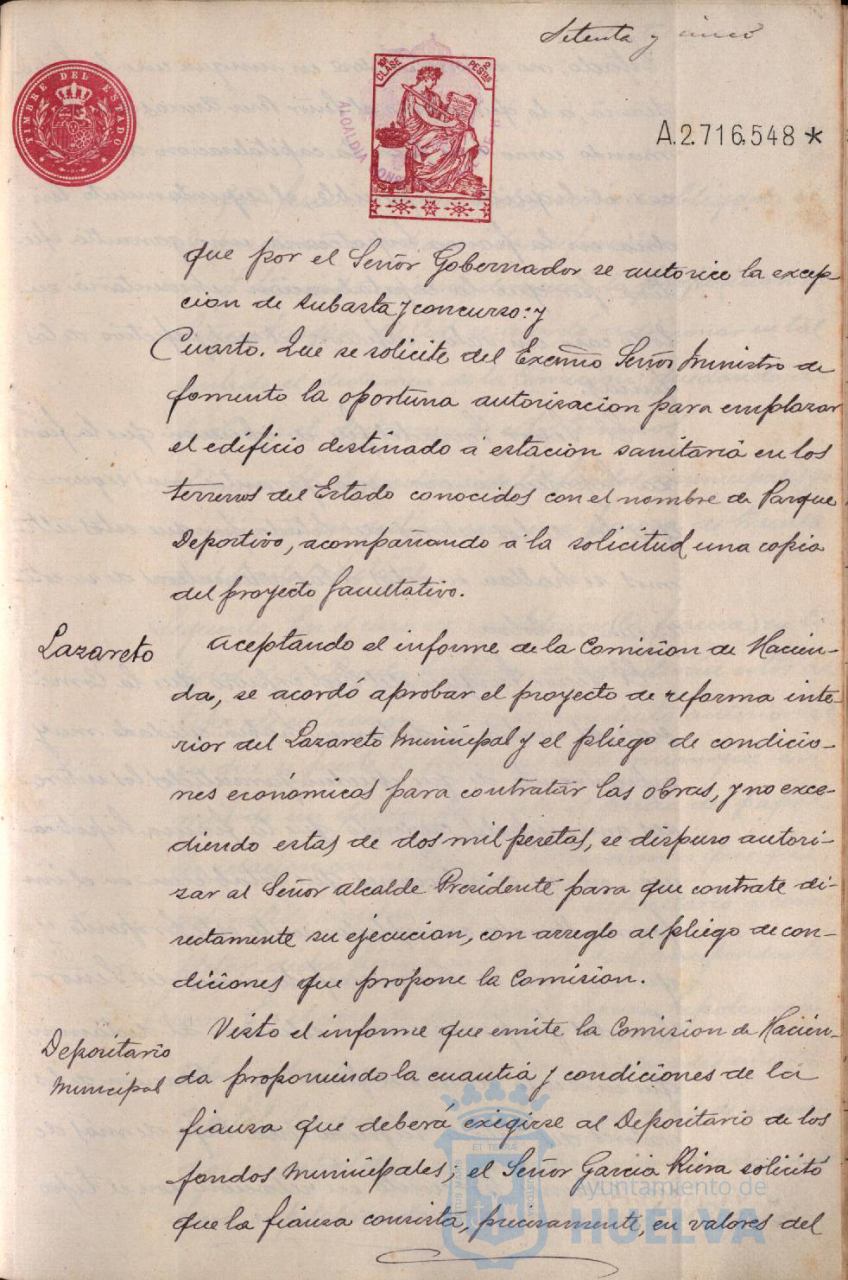 Setenta y cinco
TIMBRE DEL ESTADO
10ª CLASE
2 PESETAS
A.2.716.548 *
que por el Señor Gobernador se autorice la excep
cion de subasta y concurso: y
Cuarto. Que se solicite del Excmo Señor Ministro de
fomento la oportuna autorisacion para emplazar
el edificio destinado á estacion sanitaria en los
terrenos del Estado conocidos con el nombre de Parque
Deportivo, acompañando á la solicitud una copia
del proyecto facultativo.
Lazareto
Aceptando el informe de la Comision de Hacien-
da, se acordó aprobar el proyecto de reforma inte-
rior del Lazareto Municipal y el pliego de condicio-
nes económicas para contratar las obras, y no exce-
diendo estas de dos mil pesetas, se dispuso autori-
zar al Señor Alcalde Presidente para que contrate di-
rectamente su ejecucion, con arreglo al pliego de con-
diciones que propone la Comision.
Depositario
Municipal
Visto el informe que emite la Comision de Hacien-
da proponiendo la cuantia y condiciones de la
fianza que deberá exigirse al Depositario de los
fondos Municipales; el Señor Garcia Riera solicitó
que la fianza consista, precisamente, en valores del
Ayuntamiento de
HUELVA